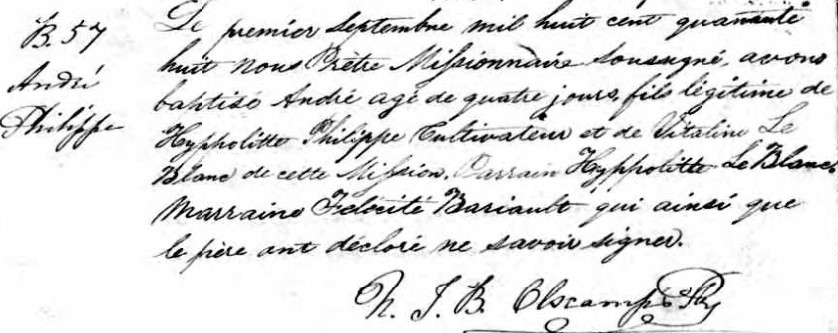 B. 57
André
Philippe
Le premier Septembre mil huit cent quarante
huit nous Prêtre Missionnaire soussigné, avons
baptisé André agé de quatre jours, fils légitime de
Hyppolitte Philippe Cultivateur et de Vitaline Le
Blanc de cette Mission. Parrain Hyppolitte Le Blanc
Marraine Felecité Bariault qui ainsi que
le père ont déclaré ne savoir signer.
N. J. B. Olscamps Ptre